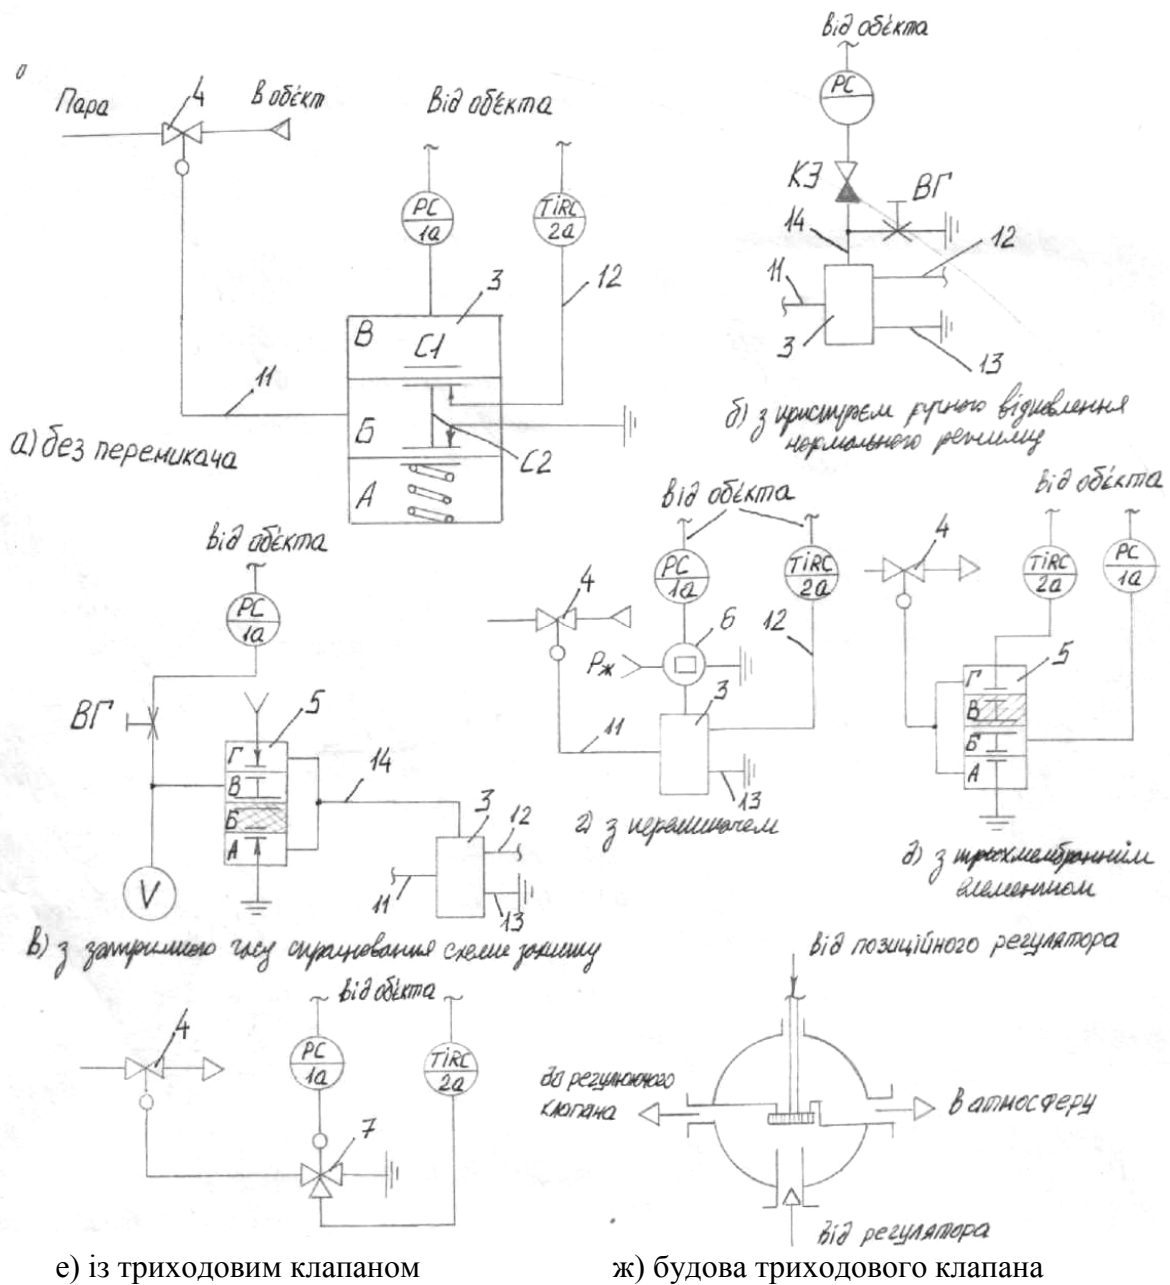 від об'єкта
Пара
4
в об'єкт
Від об'єкта
PC
КЭ
ВГ
14
12
11
3
13
PC
1а
TiRC
2а
3
12
В
С1
Б
С2
А
11
а) без перемикача
б) з пристроєм ручного відновлення
нормального режиму
від об'єкта
PC
1а
ВГ
5
Г
В
Б
А
14
3
12
11
13
V
в) з затримкою часу спрацювання схеми захисту
від об'єкта
4
PC
1а
TiRC
2а
6
12
Рж
3
11
13
г) з перемикачем
від об'єкта
4
TiRC
2а
PC
1а
5
Г
В
Б
А
д) з трьохмембранним
елементом
від об'єкта
4
PC
1а
TiRC
2а
7
від позиційного регулятора
до регулюючого
клапана
в атмосферу
від регулятора
е) із триходовим клапаном
ж) будова триходового клапана